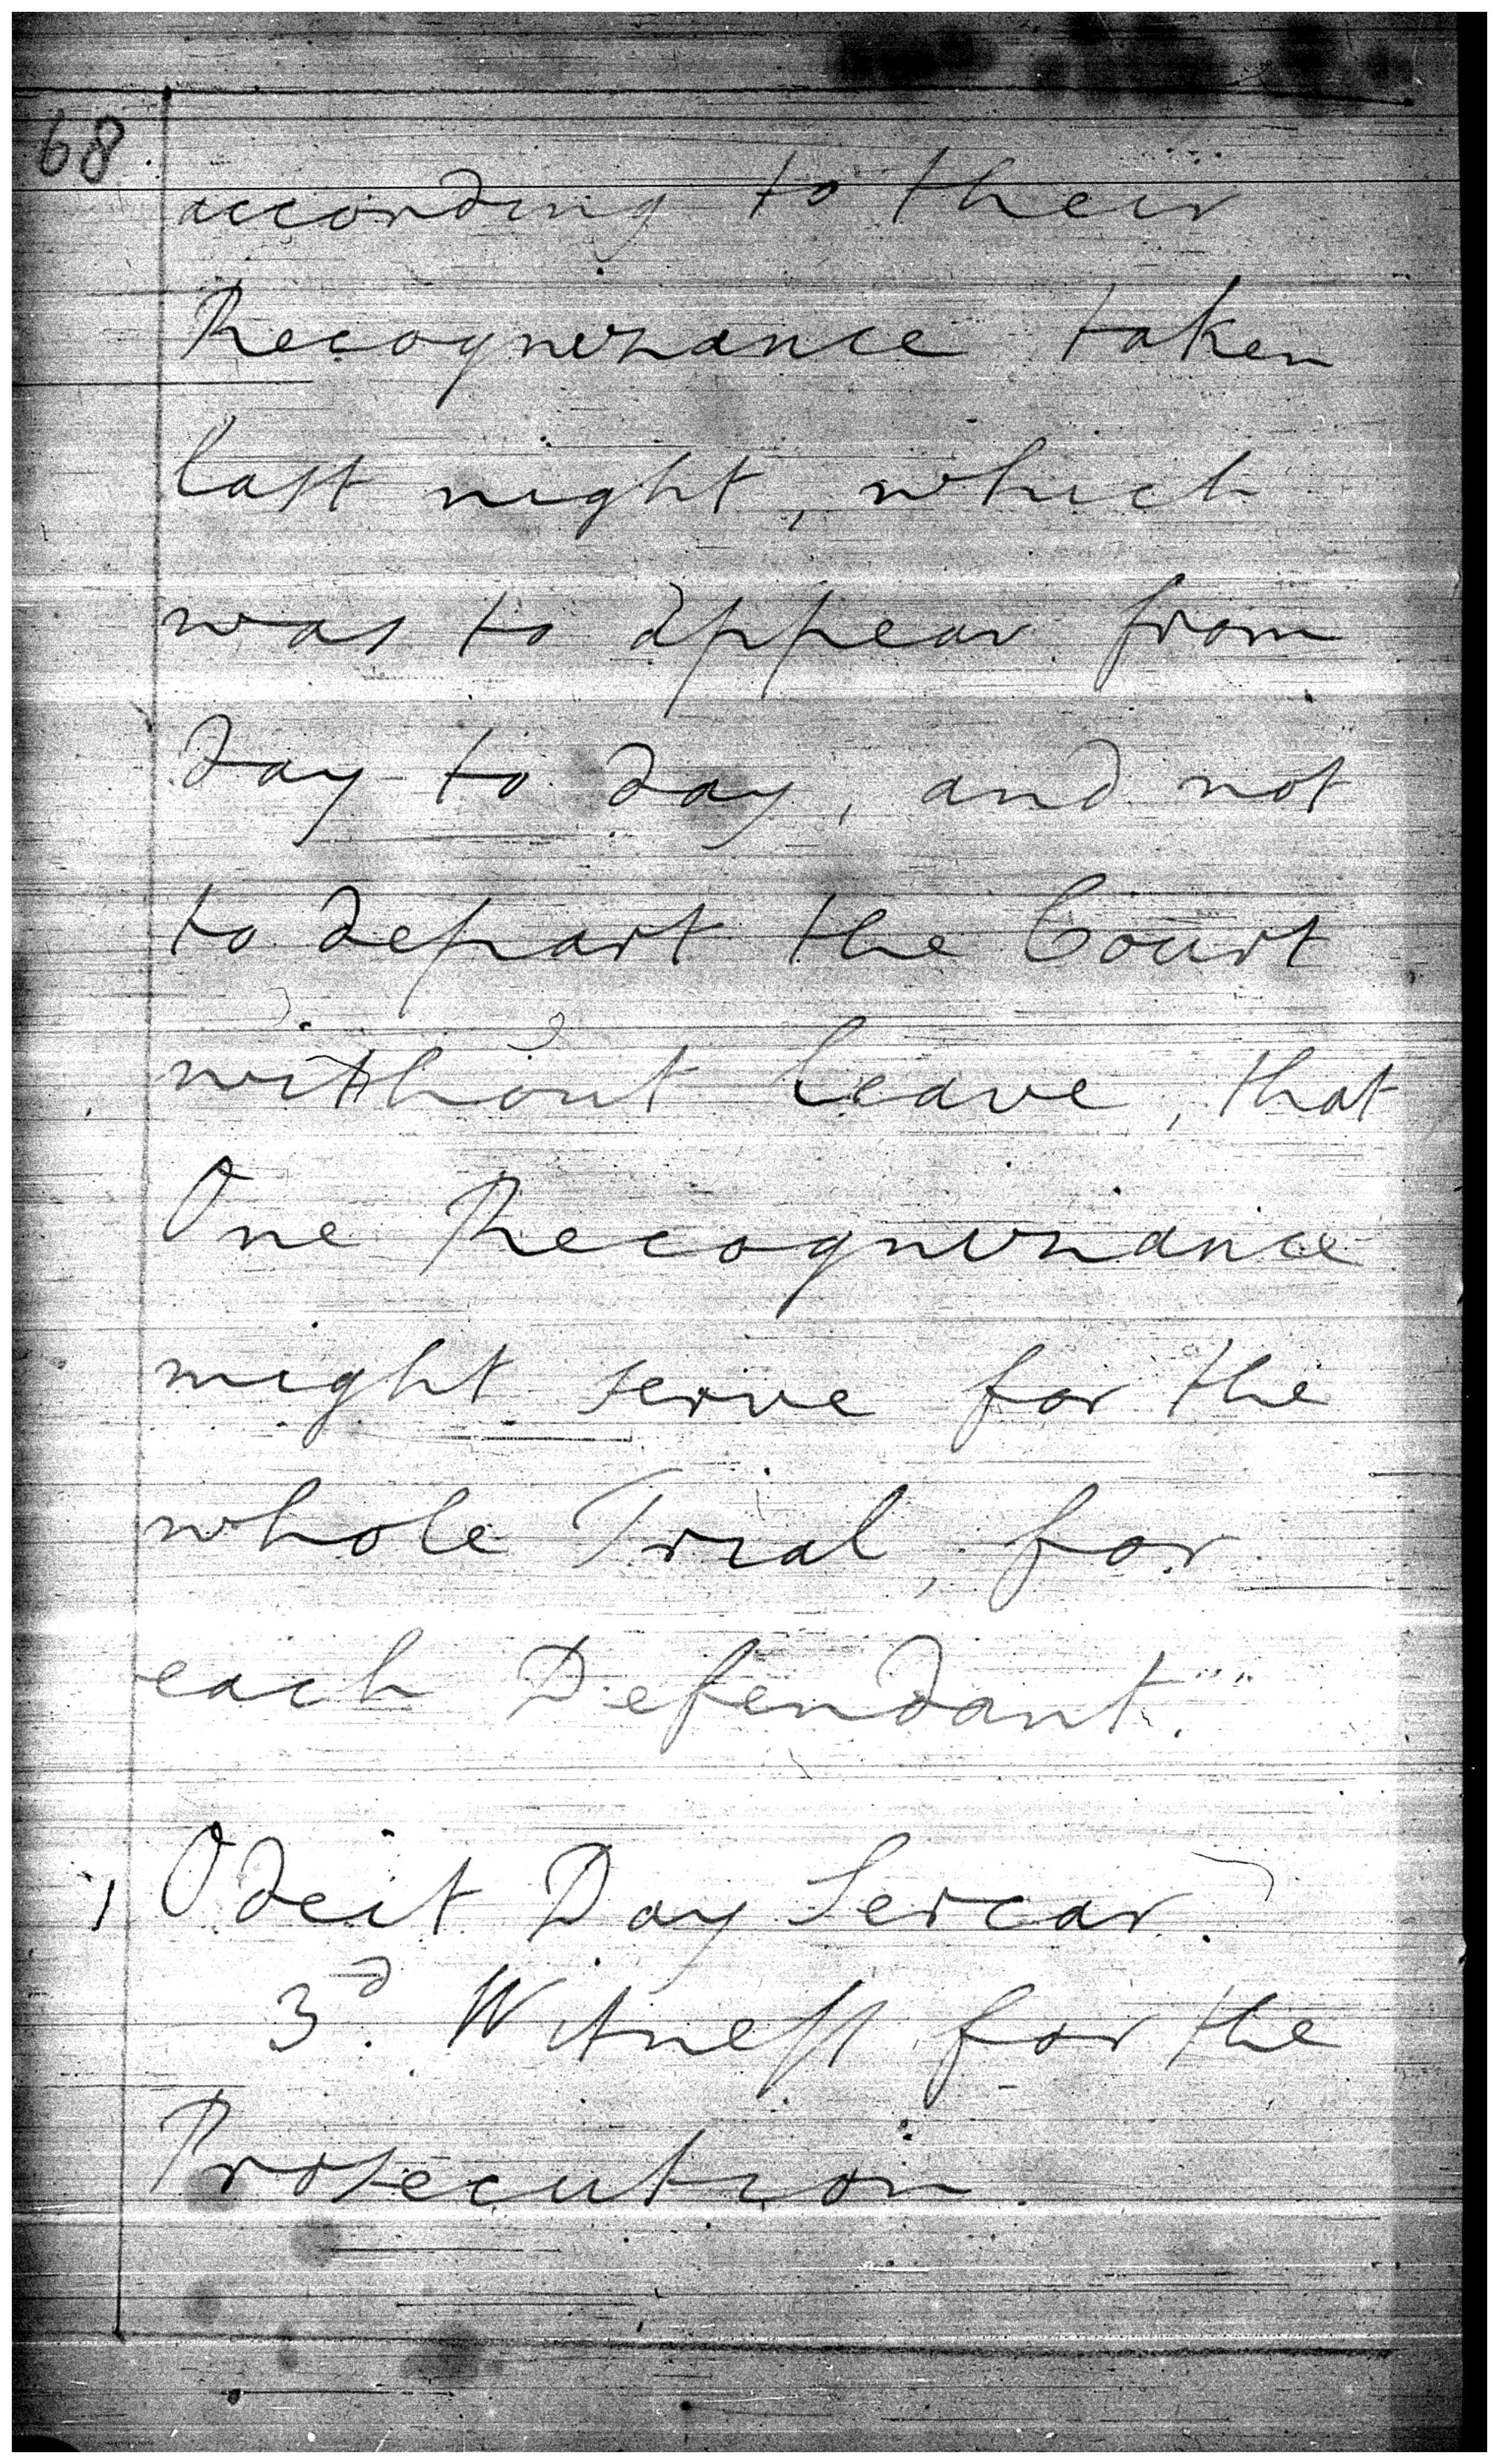 68
according to their
Recognizance taken
last night, which
was to appear from
day to day, and not
to depart the Court
without leave, that
One Recognizance
might serve for the
whole Trial, for
each Defendant.
Odeit Day Sercar.
3d. Witness for the
Prosecution.